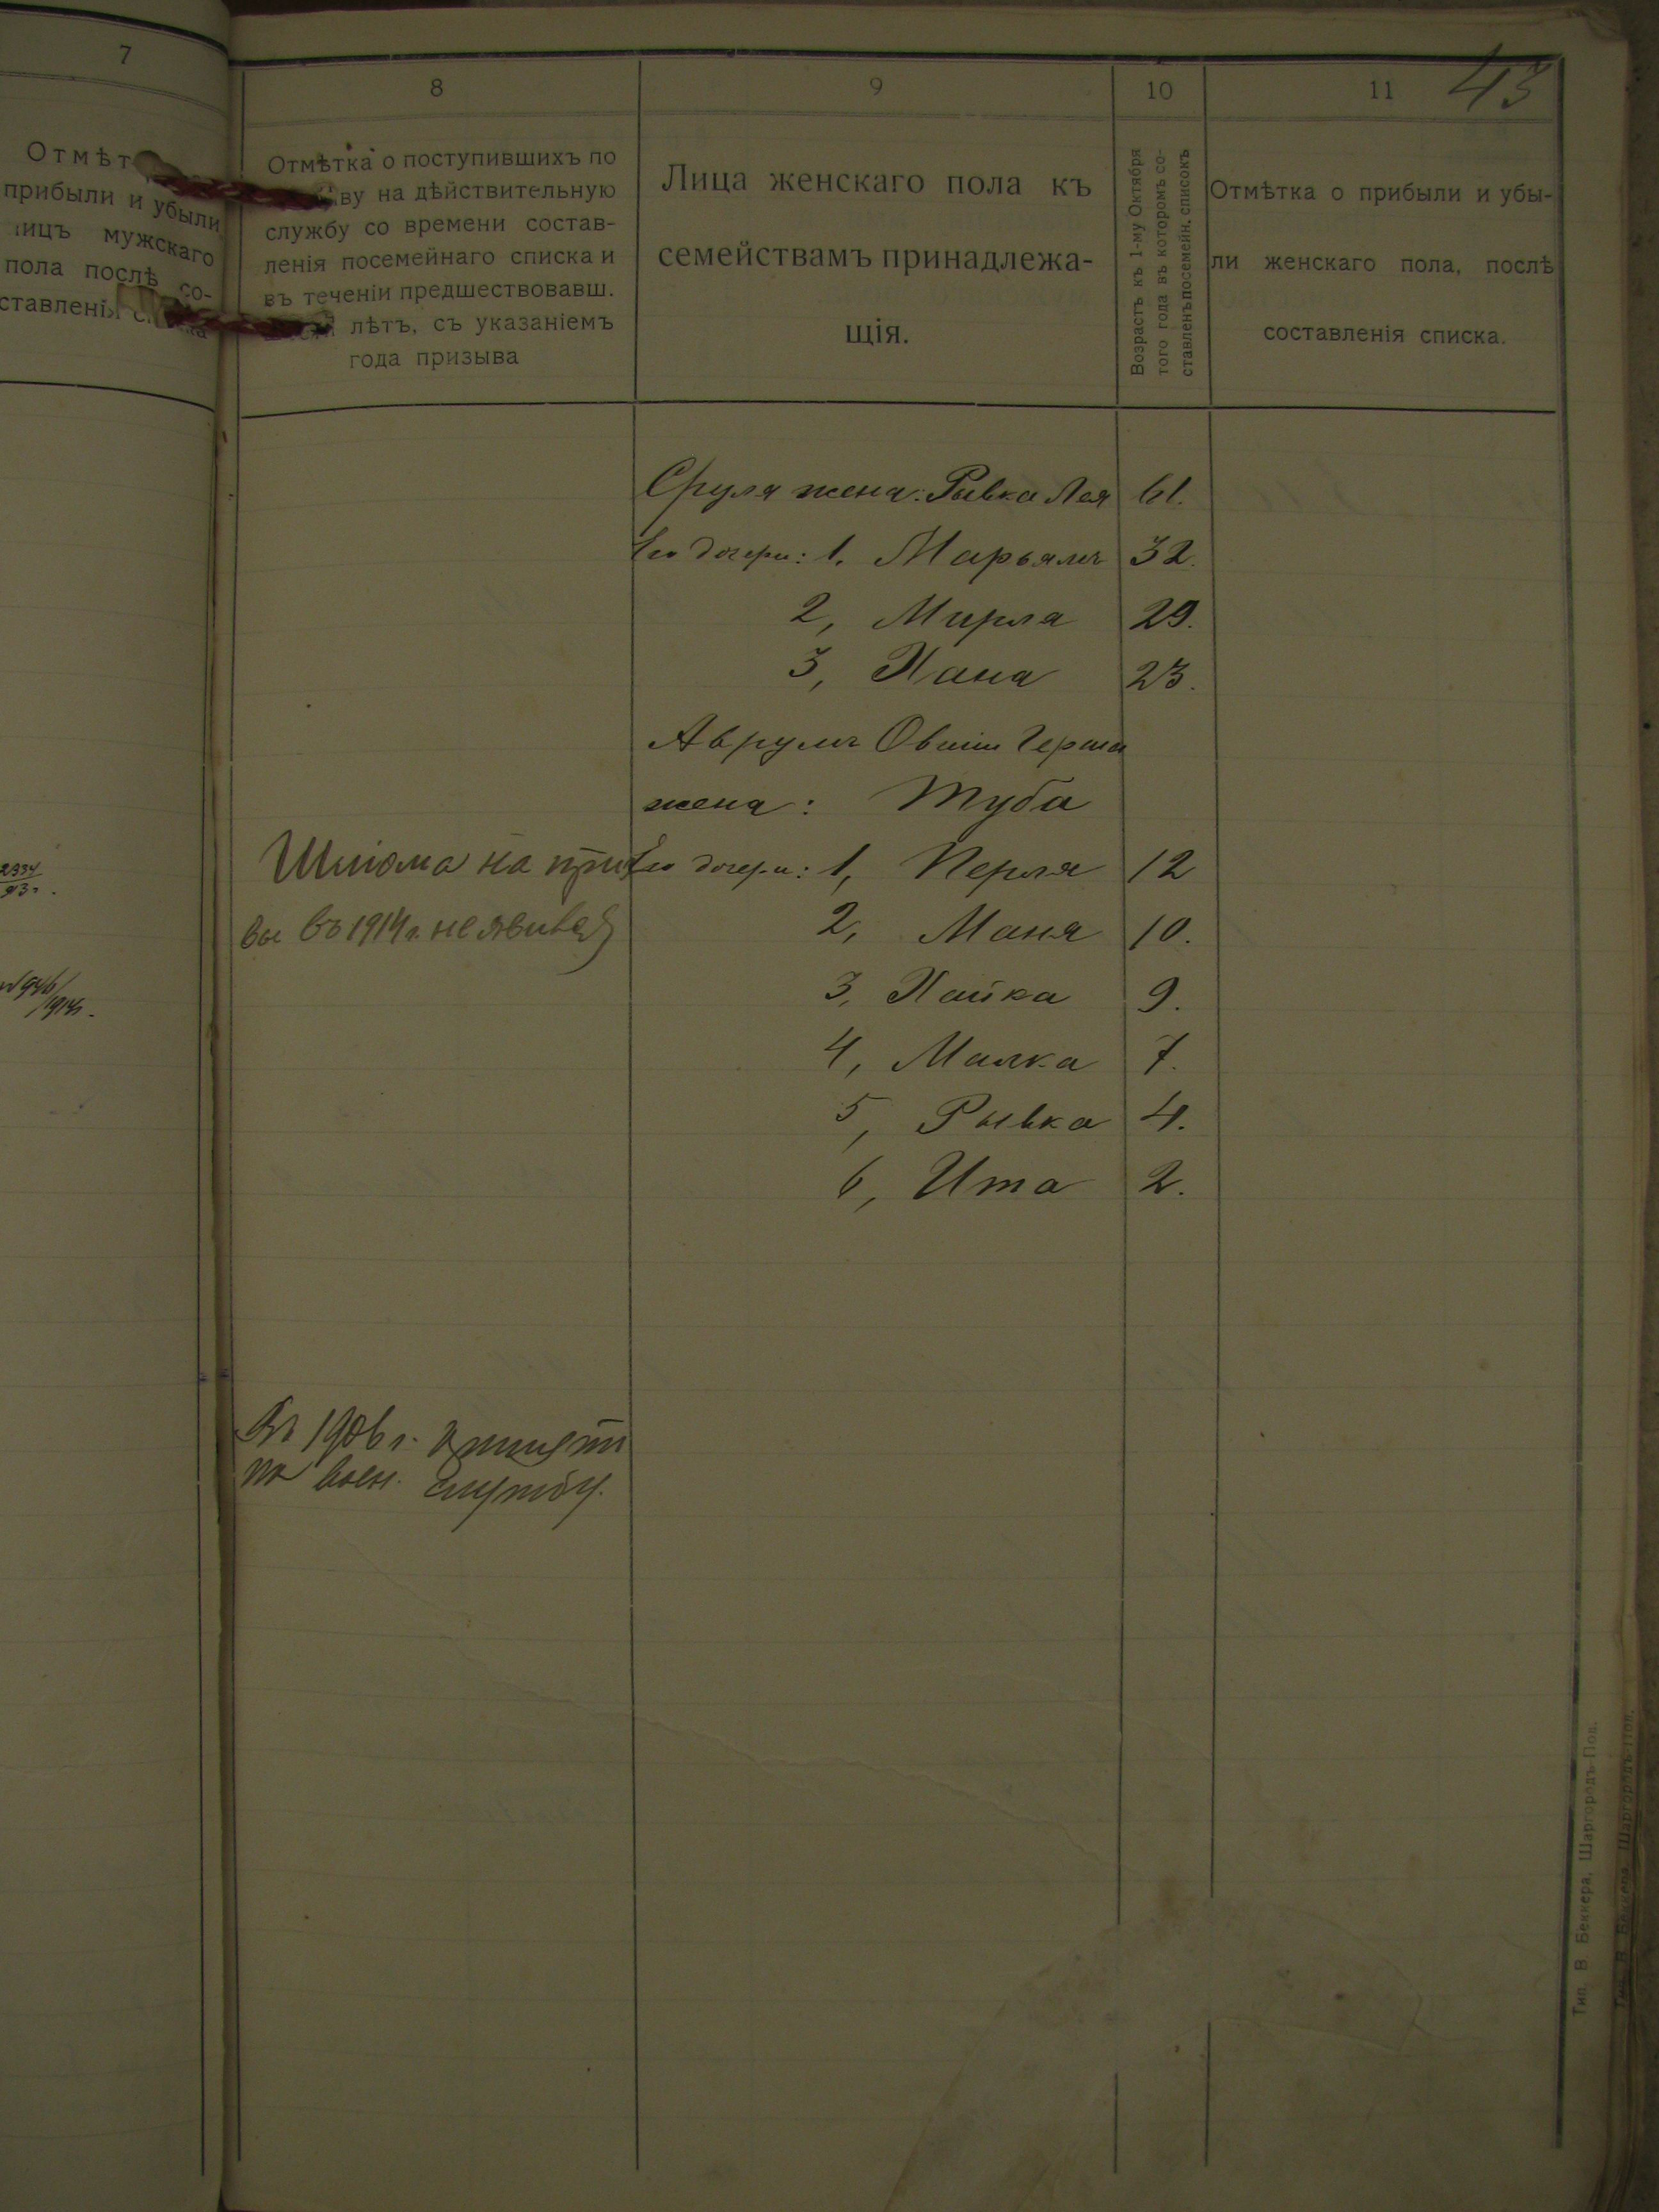 7
Отмѣт
прибыли и убыли
лицъ мужскаго
пола послѣ со-
ставленія
2334
946/1914г.
8
Отмѣтка о поступившихъ по
ву на дѣйствительную
службу со времени состав-
ленія посемейнаго списка и
въ теченіи предшествовавш.
лѣтъ, съ указаніемъ
года призыва
Шліома на при
вы въ 1914 г. не явився
Въ 1906 г. принятъ
на воен. службу.
9
Лица женскаго пола къ
семействамъ принадлежа-
щія.
10
Возрастъ къ 1-му Октября
того года въ которомъ со-
ставленъ посемейн. списокъ
11
43
Отмѣтка о прибыли и убы-
ли женскаго пола, послѣ
составленія списка.
Сруля жена: Рывка Лея 61.
Его дочери: 1, Марьямъ 32.
2, Мирля 29.
3, Хана 23.
Аврумъ Овшія Герша
жена: Туба
Его дочери: 1, Перля 12
2, Маня 10.
3, Хайка 9.
4, Малка 7.
5, Рывка 4.
6, Ита 2.
Тип. В. Беккера, Шаргородъ-Под.
Тип. В. Беккера, Шаргородъ-Под.